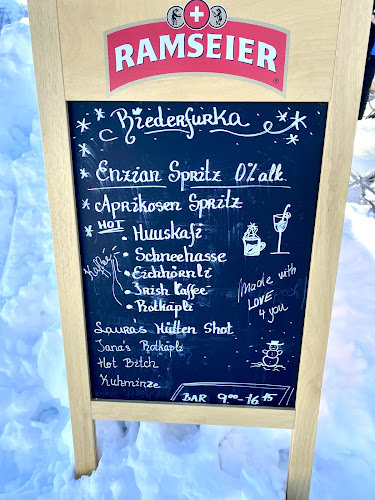 RAMSEIER
Riederfurka
Enzian Spritz 0% alk.
Aprikosen Spritz
HOT
• Huuskafi
• Schneehasse
• Eichhörnli
• Irish Kaffee
• Rotkäpli
Kaffee
Made with
LOVE
4 you
Laura's Hütten Shot
Jana's Rotkäpli
Hot Bitch
Kuhminze
BAR 9.00-16.15